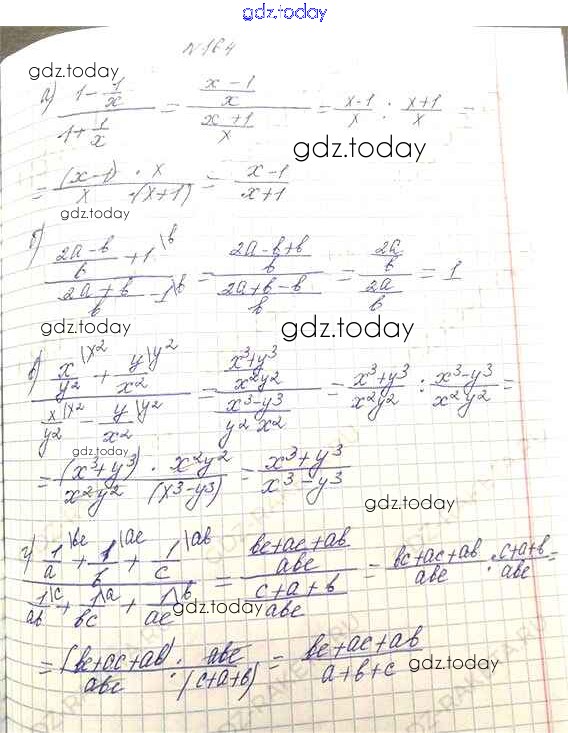 gdz.today
N 164
gdz.today
а) (1 - 1/x)/(1 + 1/x) = ((x - 1)/x)/((x + 1)/x) = (x-1)/x : (x+1)/x =
gdz.today
= ((x-1) · x)/(x · (x+1)) = (x-1)/(x+1)
gdz.today
б) ((2a-b)/b + 1\b)/((2a+b)/b - 1\b) = ((2a-b+b)/b)/((2a+b-b)/b) = (2a/b)/(2a/b) = 1
gdz.today gdz.today
в) (x/y²\x² + y/x²\y²)/(x/y²\x² - y/x²\y²) = ((x³+y³)/(x²y²))/((x³-y³)/(y²x²)) = (x³+y³)/(x²y²) : (x³-y³)/(x²y²) =
gdz.today
= ((x³+y³) · x²y²)/(x²y² (x³-y³)) = (x³+y³)/(x³-y³)
gdz.today
г) (1/a\bc + 1/b\ac + 1/c\ab)/(1/ab\c + 1/bc\a + 1/ac\b) = ((bc+ac+ab)/abc)/((c+a+b)/abc) = (bc+ac+ab)/abc : (c+a+b)/abc =
gdz.today
= ((bc+ac+ab) · abc)/(abc · (c+a+b)) = (bc+ac+ab)/(a+b+c)
gdz.today